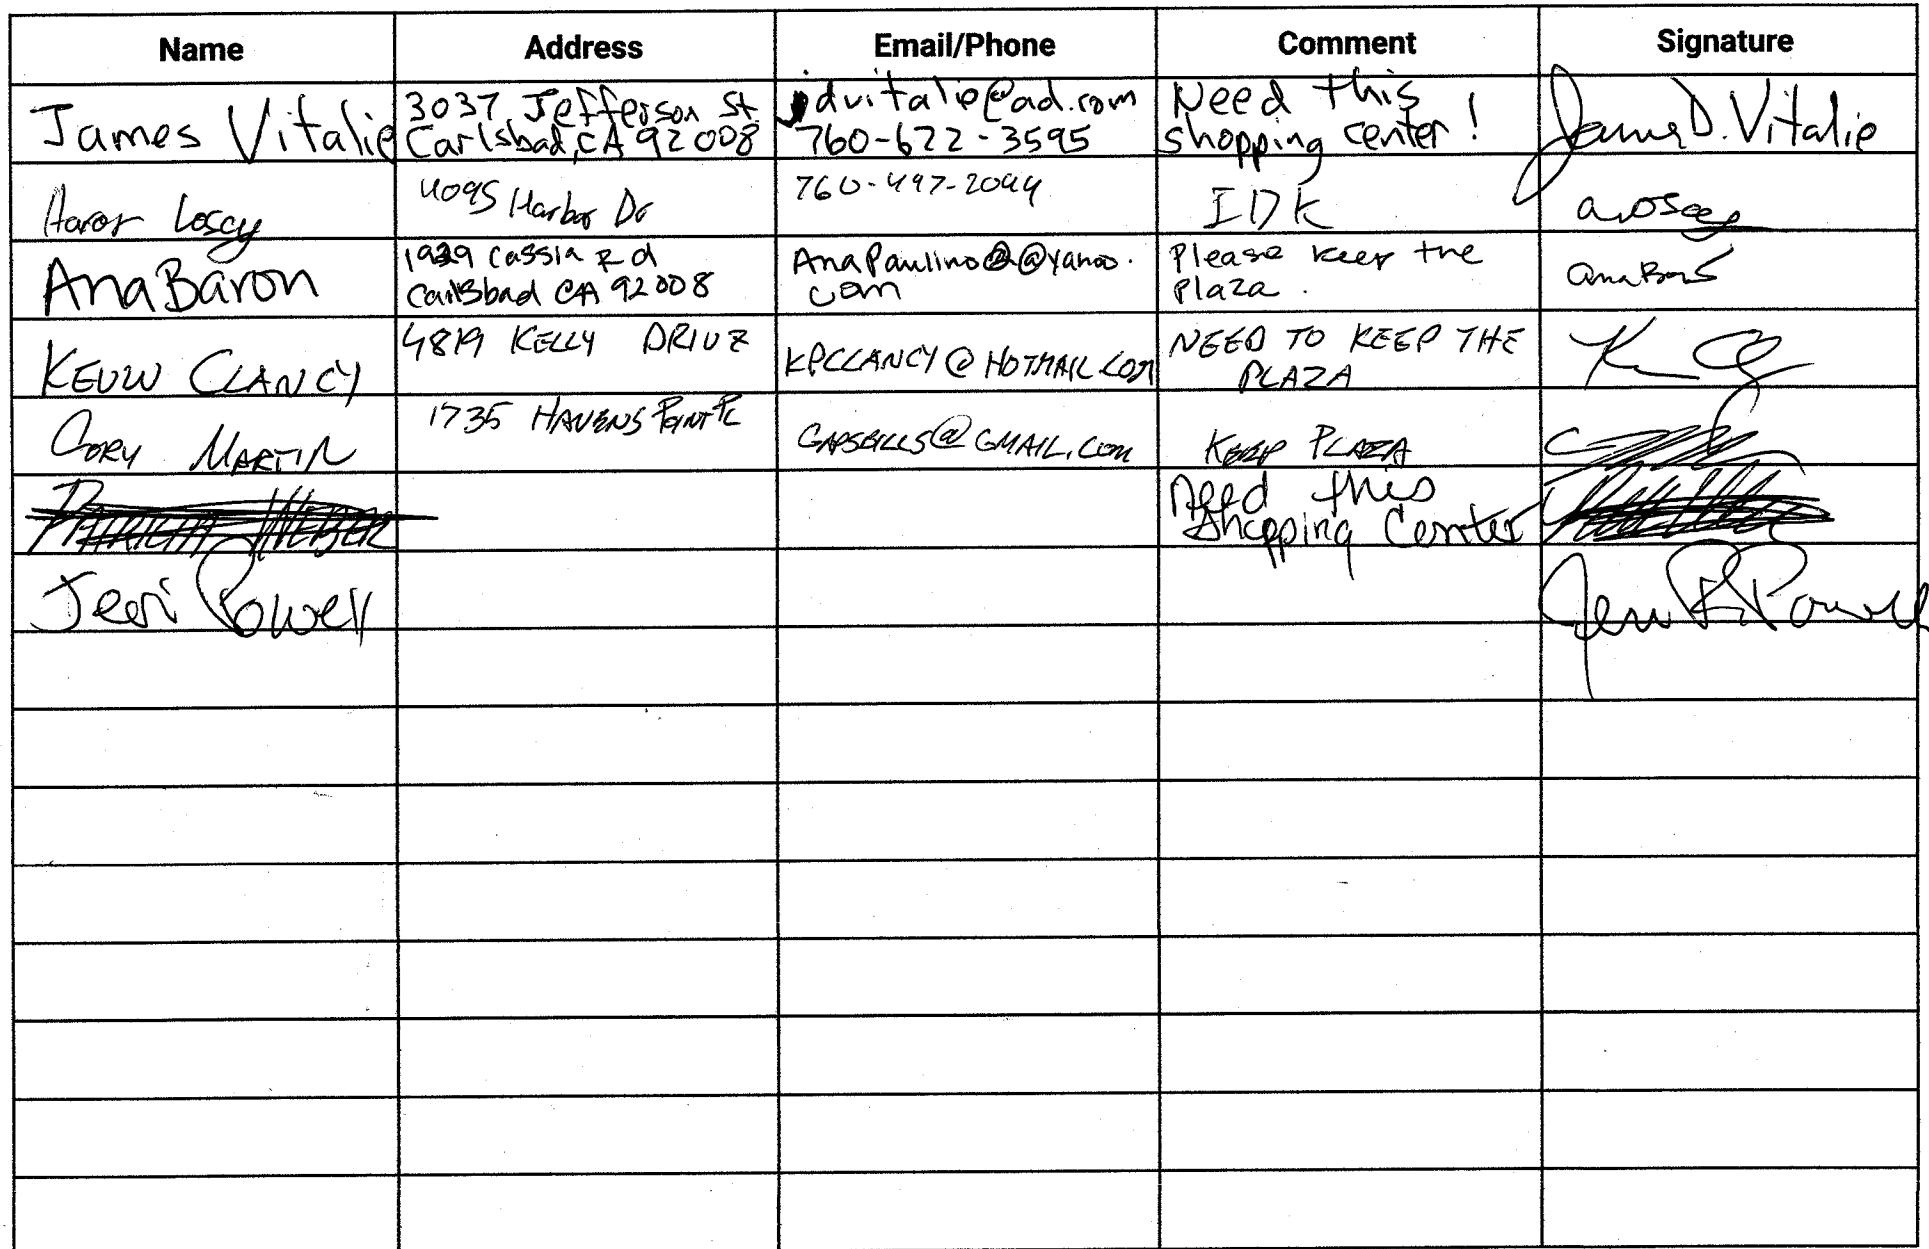 Name Address Email/Phone Comment Signature
James Vitalie 3037 Jefferson St. Carlsbad, CA 92008 jdvitalie@ad.com 760-622-3595 Need this shopping center! James D. Vitalie
4095 Harbor Dr 760-497-2044 IDK
Ana Baron Cassia Rd Carlsbad CA 92008 Please keep the Plaza.
KEVIN CLANCY 4819 KELLY DRIVE KPCLANCY@HOTMAIL.COM NEED TO KEEP THE PLAZA
CORY MARTIN 1735 HAVENS POINT PL GAPSBILLS@GMAIL.COM KEEP PLAZA
Need this Shopping Center
Jeri Powell